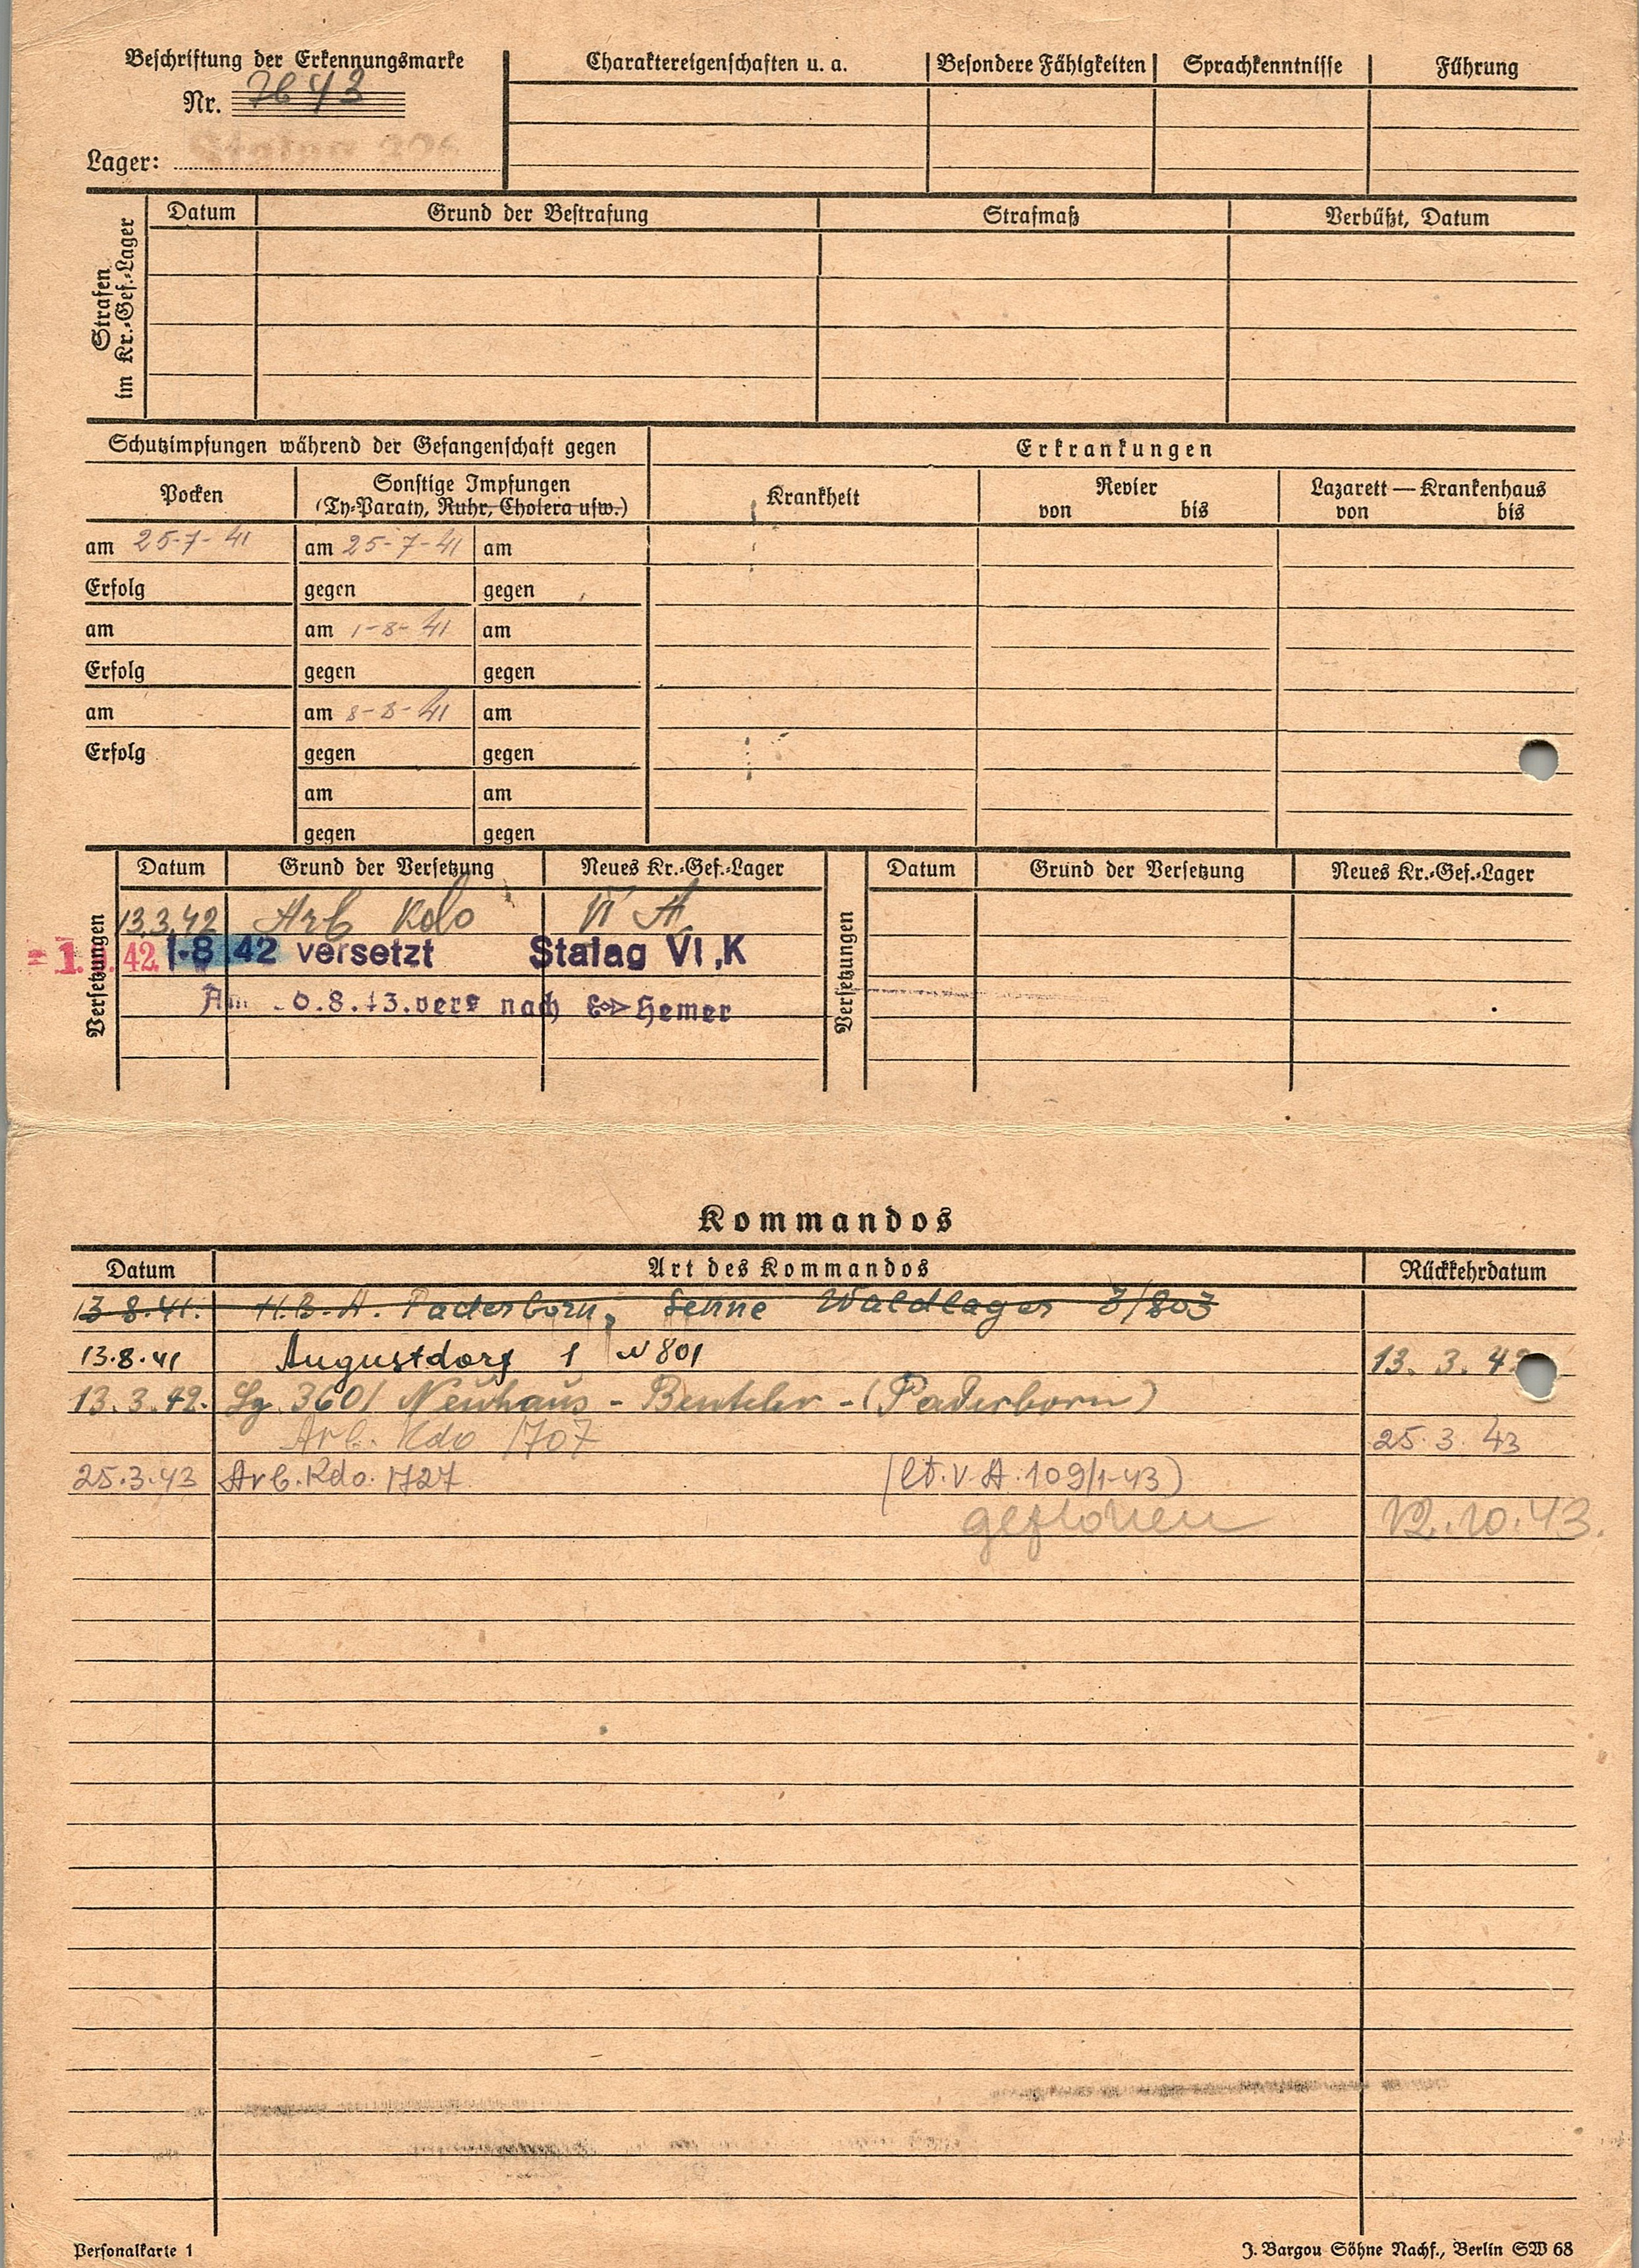 Beschriftung der Erkennungsmarke
Nr. 7643
Lager: Stalag 326
Charaktereigenschaften u. a. Besondere Fähigkeiten Sprachkenntnisse Führung
Strafen im Kr.-Gef.-Lager
Datum Grund der Bestrafung Strafmaß Verbüßt, Datum
Schutzimpfungen während der Gefangenschaft gegen
Erkrankungen
Pocken
Sonstige Impfungen
(Ty-Paraty, Ruhr, Cholera usw.)
Krankheit
Revier
von bis
Lazarett — Krankenhaus
von bis
am 25-7-41 am 25-7-41 am
Erfolg gegen gegen
am am 1-8-41 am
Erfolg gegen gegen
am am 8-8-41 am
Erfolg gegen gegen
am am
gegen gegen
Versetzungen
Datum Grund der Versetzung Neues Kr.-Gef.-Lager
13.3.42 Arb Kdo VI A
42 1-8 42 versetzt Stalag VI,K
0.8.43. vers nach Hemer
Versetzungen
Datum Grund der Versetzung Neues Kr.-Gef.-Lager
Kommandos
Datum Art des Kommandos Rückkehrdatum
13-8.41. H.B.A. Paderborn, Senne Waldlager 803
13.8.41 Augustdorf 1 801 13. 3. 42
13.3.42. 3601 Neuhaus - Benteler - (Paderborn)
Arb. Kdo 1707 25.3.43
25.3.43 Arb.Kdo. 1727 (lt.V.A.109/1-43)
geflohen 12.10.43.
Personalkarte 1
J. Bargou Söhne Nachf., Berlin SW 68